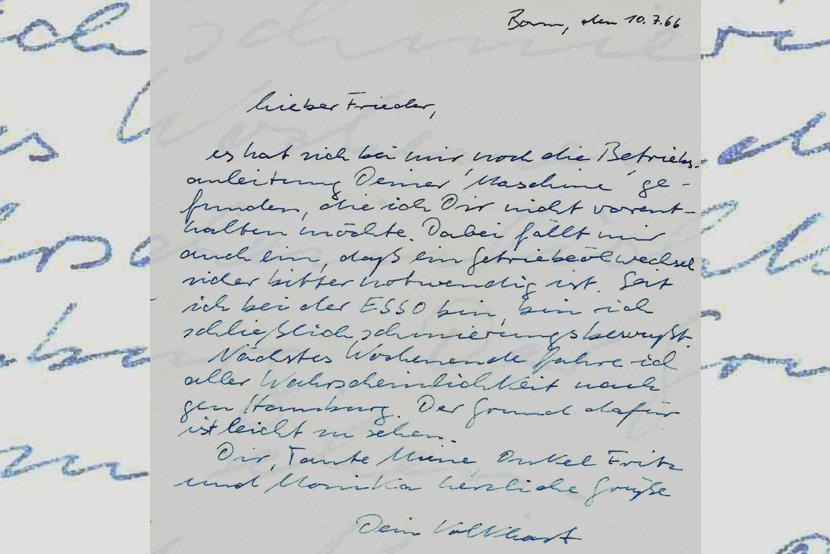 Bonn, den 10.7.66
Lieber Frieder,
es hat sich bei mir noch die Betriebs-
anleitung Deiner "Maschine" ge-
funden, die ich Dir nicht vorent-
halten möchte. Dabei fällt mir
auch ein, daß ein Getriebeölwechsel
sicher bitter notwendig ist. Seit
ich bei der ESSO bin, bin ich
schließlich schmierungsbewußt.
Nächstes Wochenende fahre ich
aller Wahrscheinlichkeit nach
gen Hamburg. Der Grund dafür
ist leicht zu sehen.
Dir, Tante Mine, Onkel Fritz
und Monika herzliche Grüße
Dein Volkhart